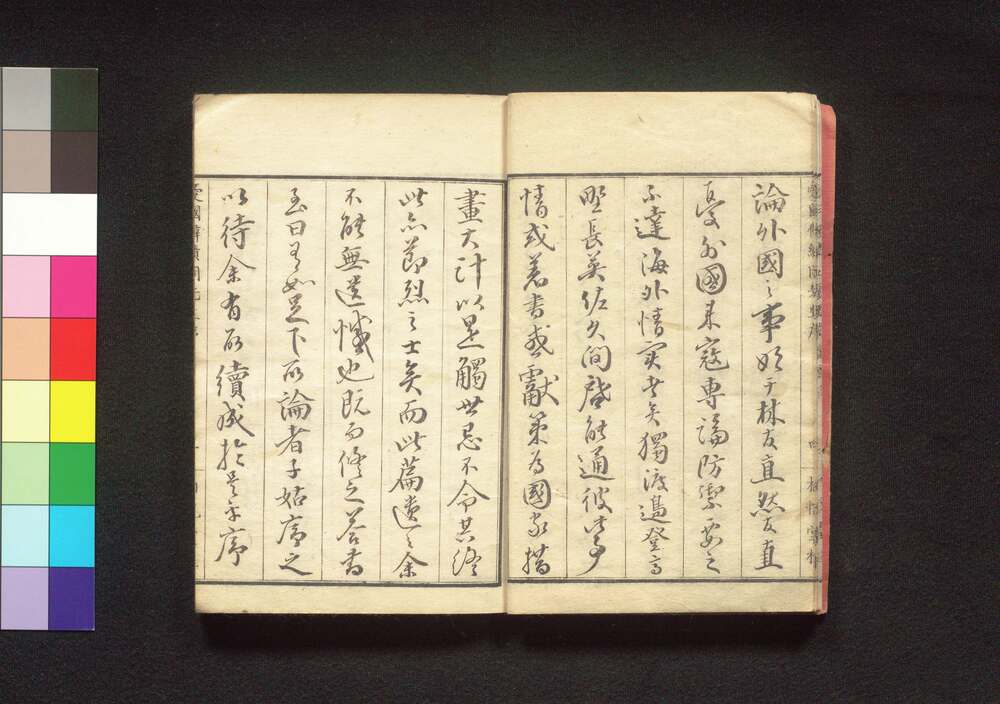 論外國之事始于林友直然友直
憂外國来寇専論防禦要之
不達海外情実者矣獨渡邉登高
野長英佐久間啓能通彼此事
情或著書或獻策為國家措
畫大計以是觸世忌不令其終
此亦節烈之士矣而此篇遺之余
不能無遺憾也既而修之答書
至曰有如足下所論者子姑序之
以待余有所續成於是乎序